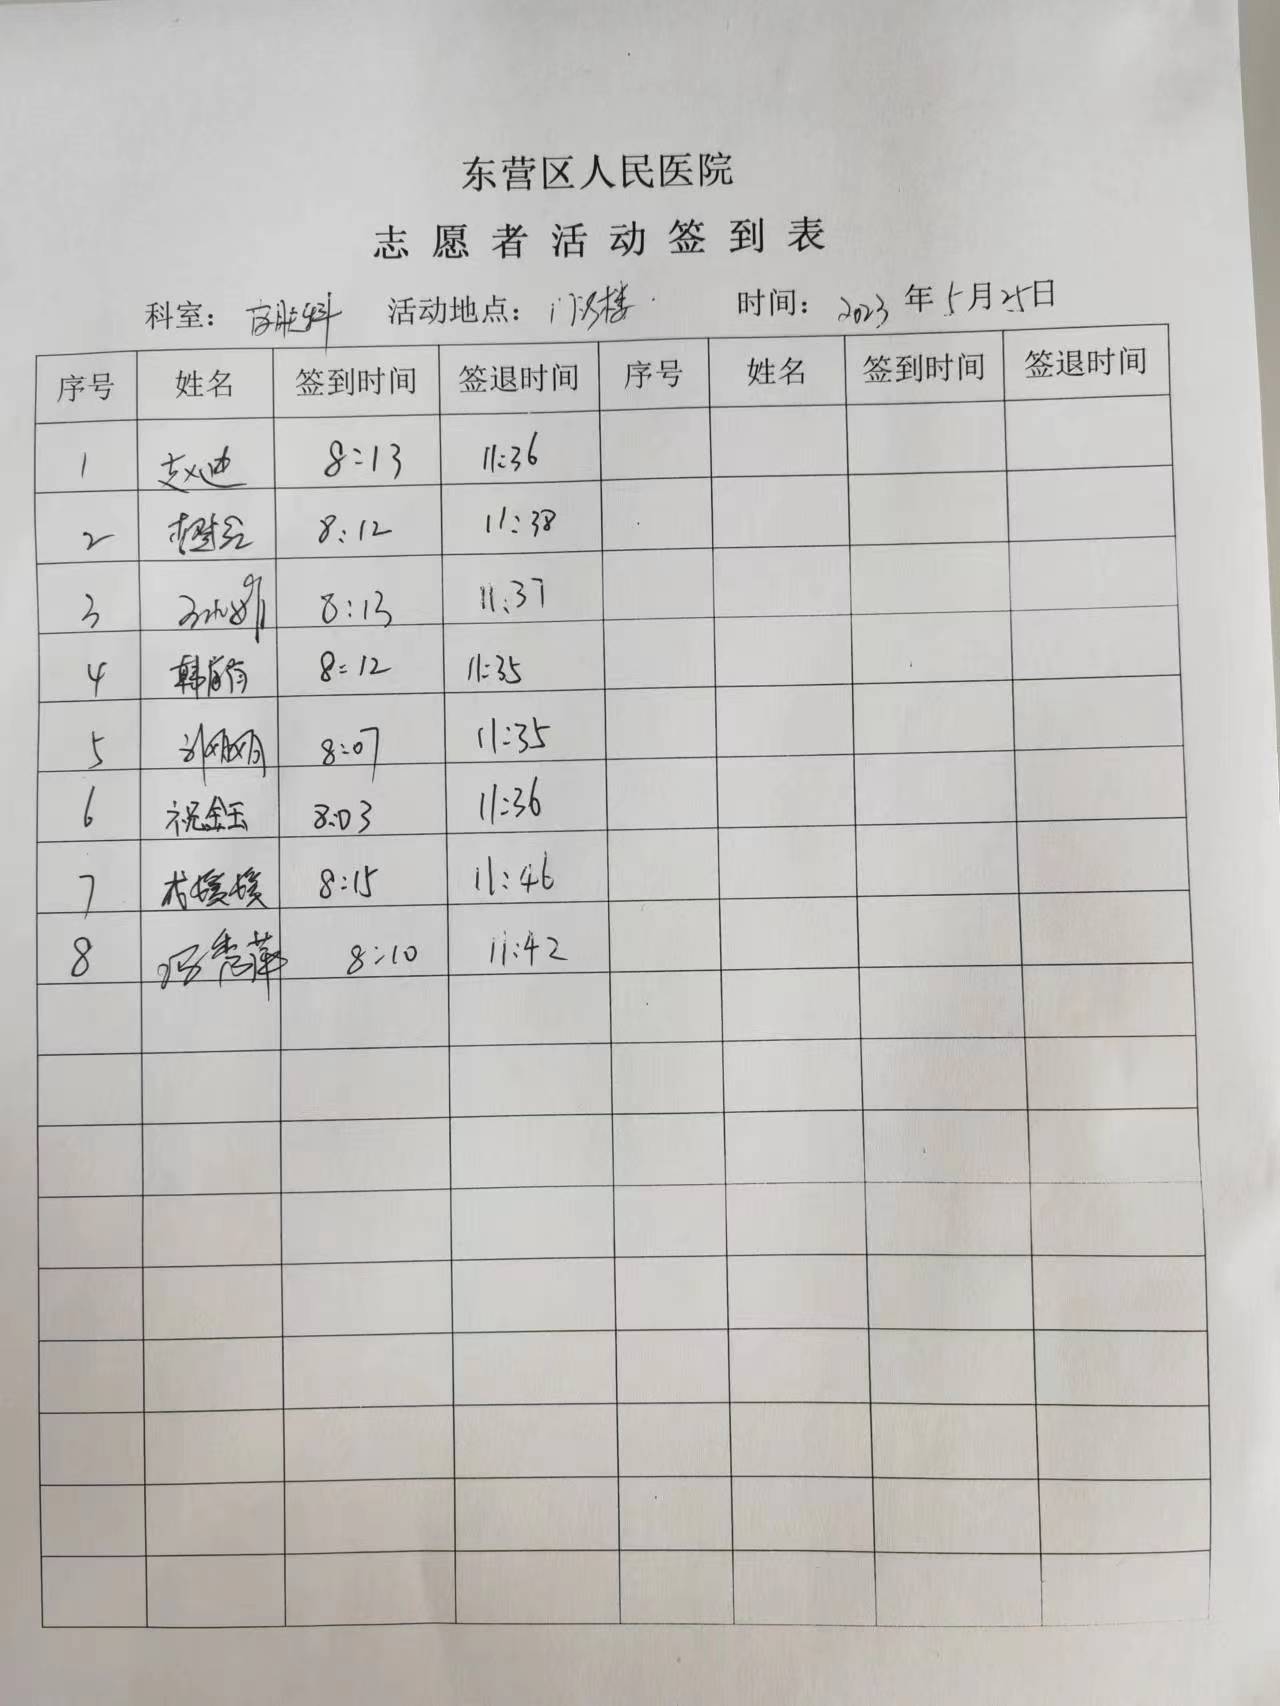 东营区人民医院
志愿者活动签到表
科室：肛肠科 活动地点：门诊楼 时间：2023年5月25日
序号 姓名 签到时间 签退时间 序号 姓名 签到时间 签退时间
1 赵迪 8:13 11:36
2 8:12 11:38
3 8:13 11:37
4 韩 8:12 11:35
5 8:07 11:35
6 祝金玉 8:03 11:36
7 8:15 11:46
8 冯秀萍 8:10 11:42